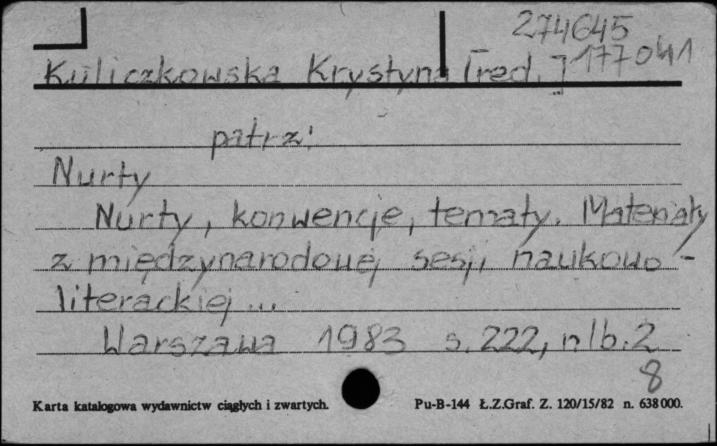 274645
Kuliczkowska Krystyna [red.] 177041
patrz:
Nurty
Nurty, konwencje, tematy. Materiały
z międzynarodowej sesji naukowo-
literackiej...
Warszawa 1983 s. 222, nlb. 2
8
Karta katalogowa wydawnictw ciągłych i zwartych. Pu-B-144 Ł.Z.Graf. Z. 120/15/82 n. 638000.